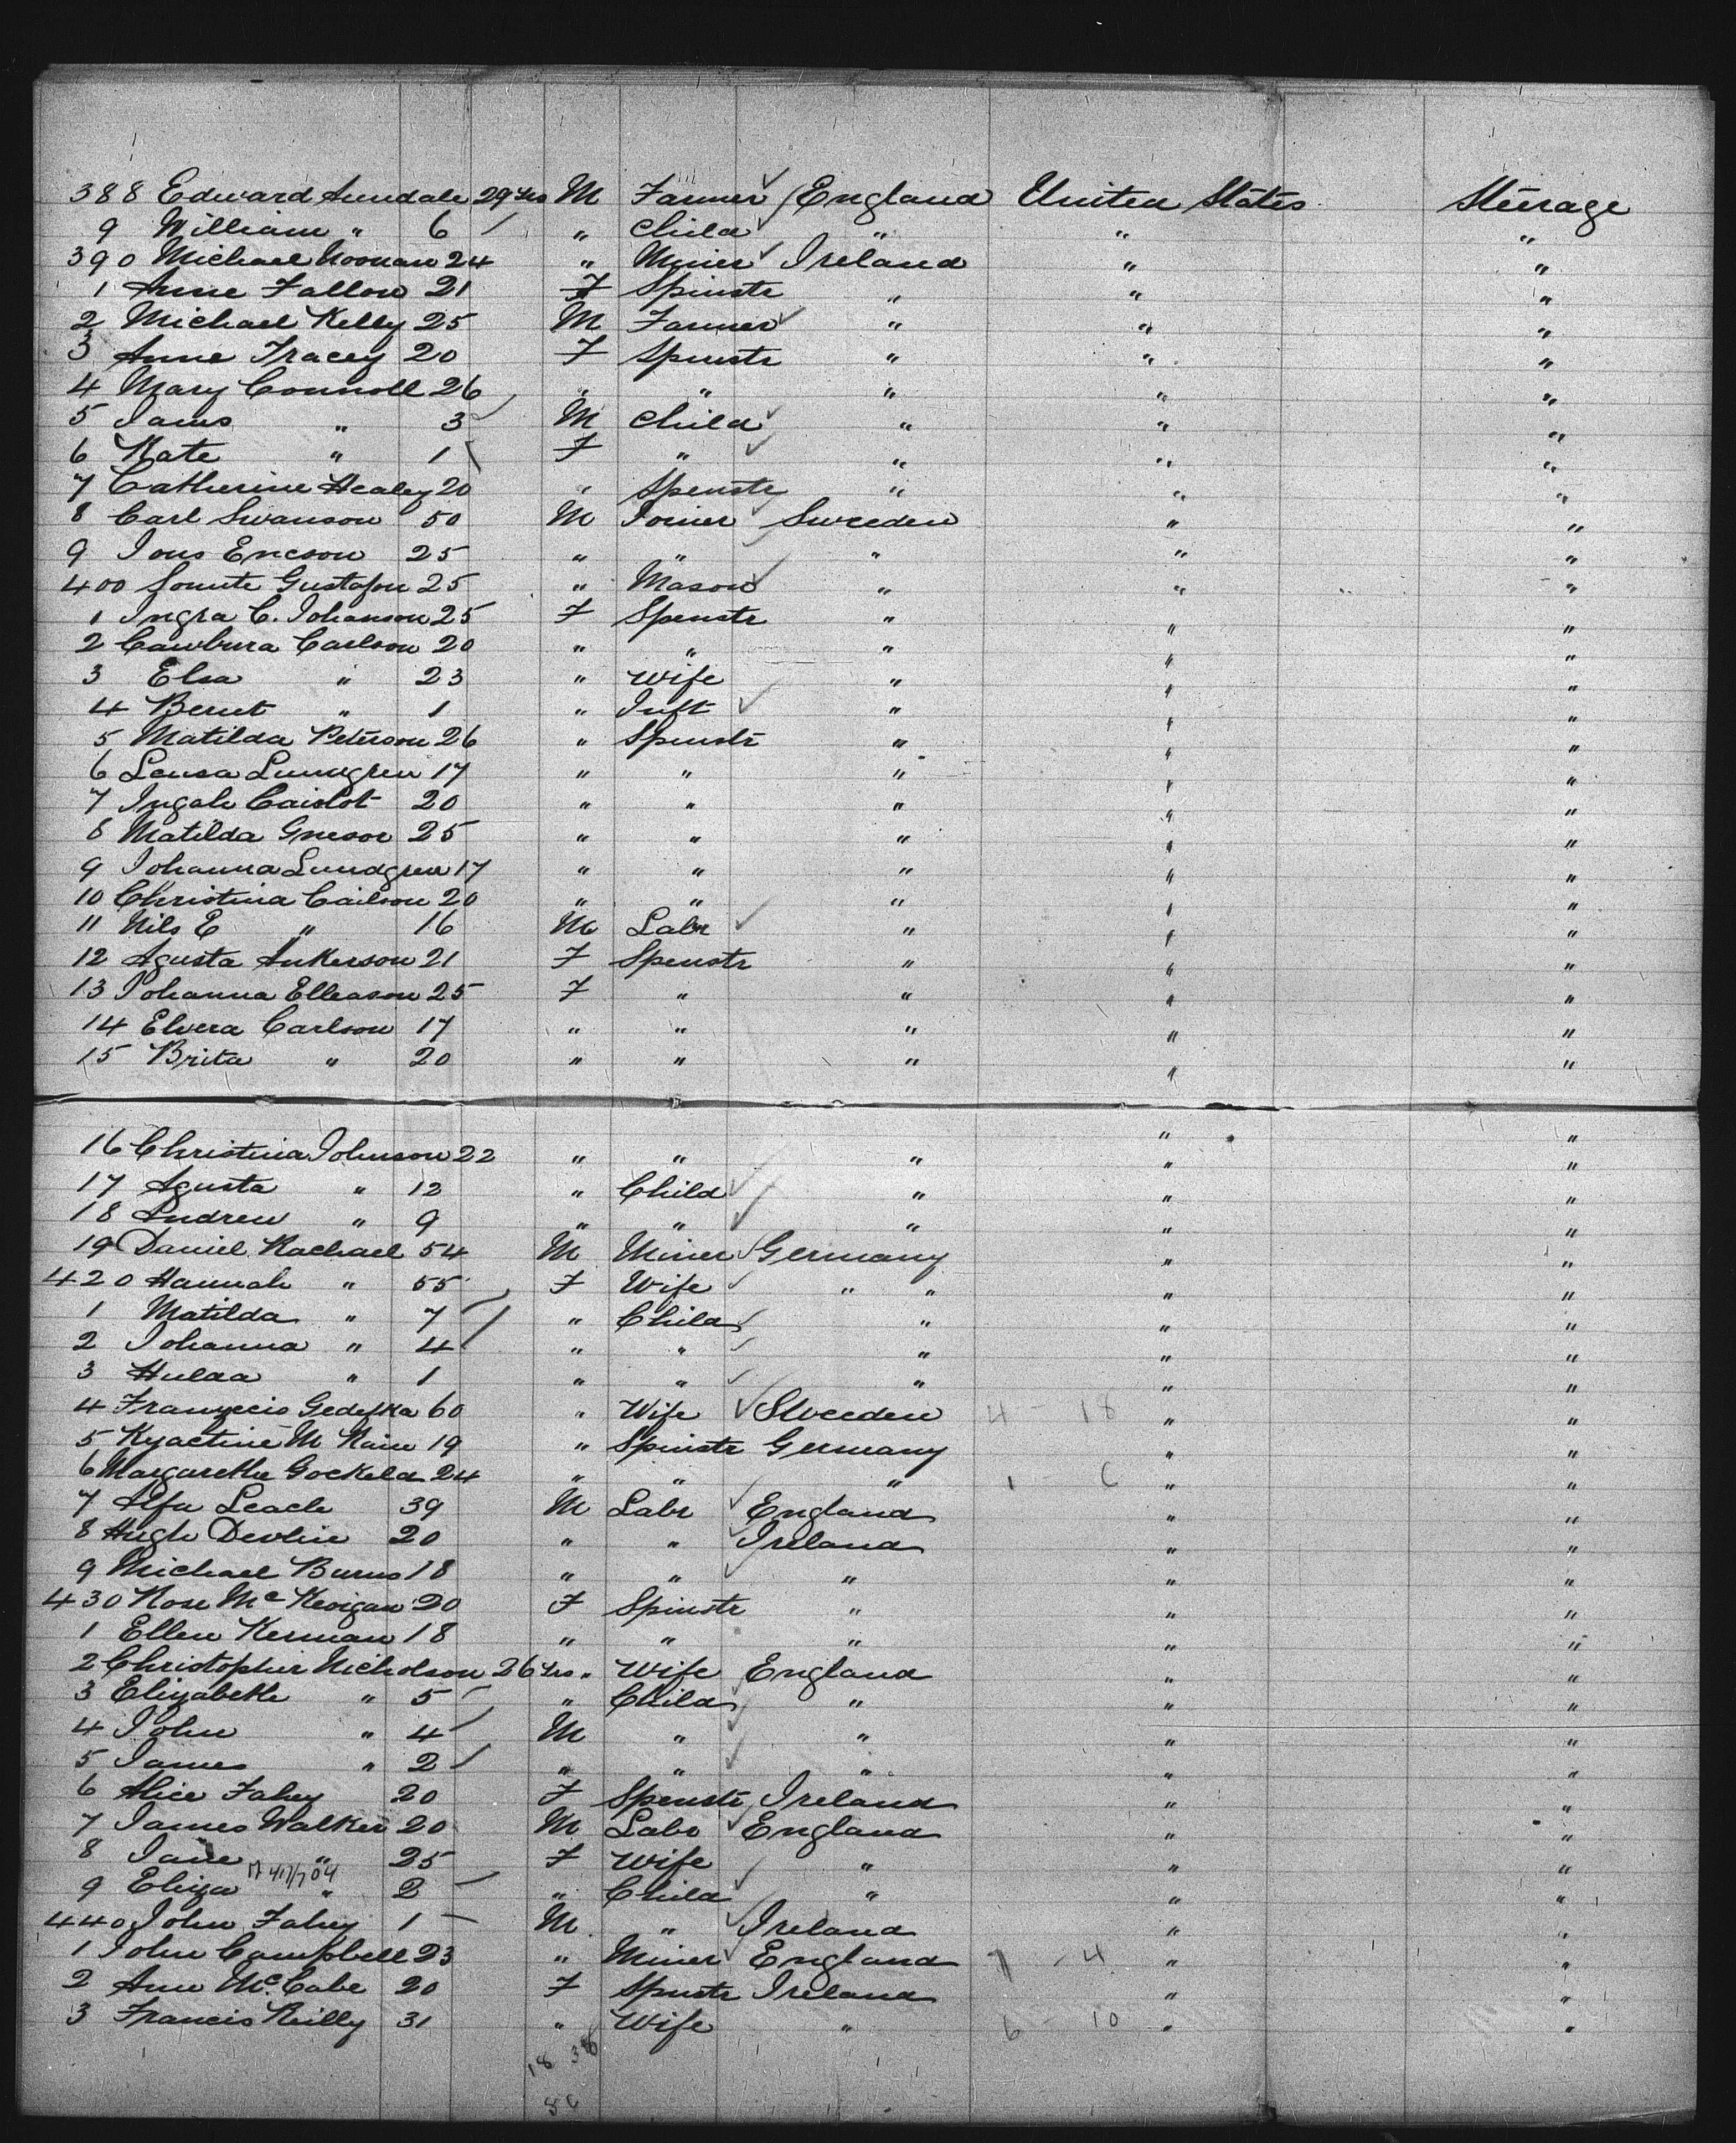 388 Edward Arundale 29 Yrs M Farmer England United States Steerage
9 William " 6 " Child " " "
390 Michael Noonan 24 " Miner Ireland " "
1 Anne Fallon 21 F Spinstr " " "
2 Michael Kelly 25 M Farmer " " "
3 Anne Tracey 20 F Spinstr " " "
4 Mary Connoll 26 " " " " "
5 James " 3 M Child " " "
6 Kate " 1 F " " " "
7 Catherine Healey 20 " Spenstr " " "
8 Carl Swanson 50 M Joiner Sweeden " "
9 Jons Ericson 25 " " " " "
400 Gustafson 25 " Mason " " "
1 Ingra C. Johanson 25 F Spenstr " " "
2 Carlson 20 " " " " "
3 Elsa " 23 " Wife " " "
4 Berut " 1 " Inft " " "
5 Matilda Peterson 26 " Spenstr " " "
6 Lousa Lundgren 17 " " " " "
7 Ingah 20 " " " " "
8 Matilda 25 " " " " "
9 Johanna Lundgren 17 " " " " "
10 Christina Cailson 20 " " " " "
11 Nils E " 16 M Labr " " "
12 Agusta Ankerson 21 F Spenstr " " "
13 Johanna Elleason 25 F " " " "
14 Elvera Carlson 17 " " " " "
15 Brita " 20 " " " " "
16 Christina Johnson 22 " " " " "
17 Agusta " 12 " Child " " "
18 Andrew " 9 " " " " "
19 Daniel Rachael 54 M Miner Germany " "
420 Hannah " 55 F Wife " " " "
1 Matilda " 7 " Child " " "
2 Johanna " 4 " " " " "
3 Hulda " 1 " " " " "
4 60 " Wife Sweeden 4 18 " "
5 M 19 " Spinstr Germany " "
6 Margarethe Gockela 24 " " " 1 6 " "
7 Alfu Leach 39 M Labr England " "
8 Hugh Devlin 20 " " Ireland " "
9 Michael Burns 18 " " " " "
430 Rose McKeoigan 20 F Spinstr " " "
1 Ellen Kernan 18 " " " " "
2 Christopher Nicholson 26 Yrs " Wife England " "
3 Elizabeth " 5 " Child " " "
4 John " 4 M " " " "
5 James " 2 " " " " "
6 Alice Fahey 20 F Spenstr Ireland " "
7 James Walker 20 M Labr England " "
8 Jane " 25 F Wife " " "
9 Eliza " 2 " Child " " "
440 John Fahey 1 M " Ireland " "
1 John Campbell 23 " Miner England 7 4 " "
2 Ann McCabe 20 F Spnstr Ireland " "
3 Francis Reilly 31 " Wife " 6 - 10 " "
18 38